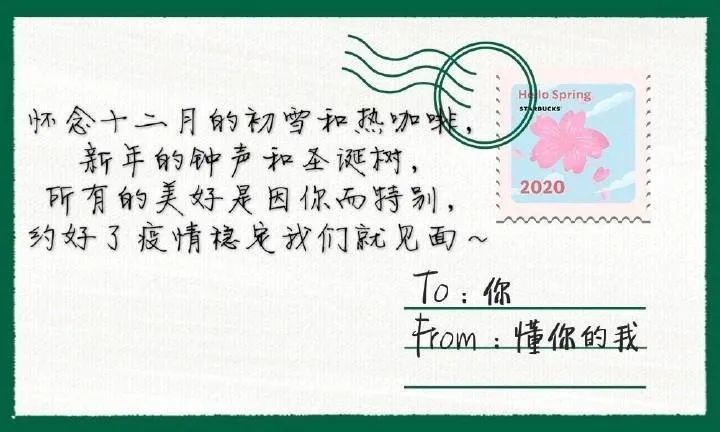 怀念十二月的初雪和热咖啡，
新年的钟声和圣诞树，
所有的美好是因你而特别，
约好了疫情稳定我们就见面～
Hello Spring
STARBUCKS
2020
To：你
From：懂你的我